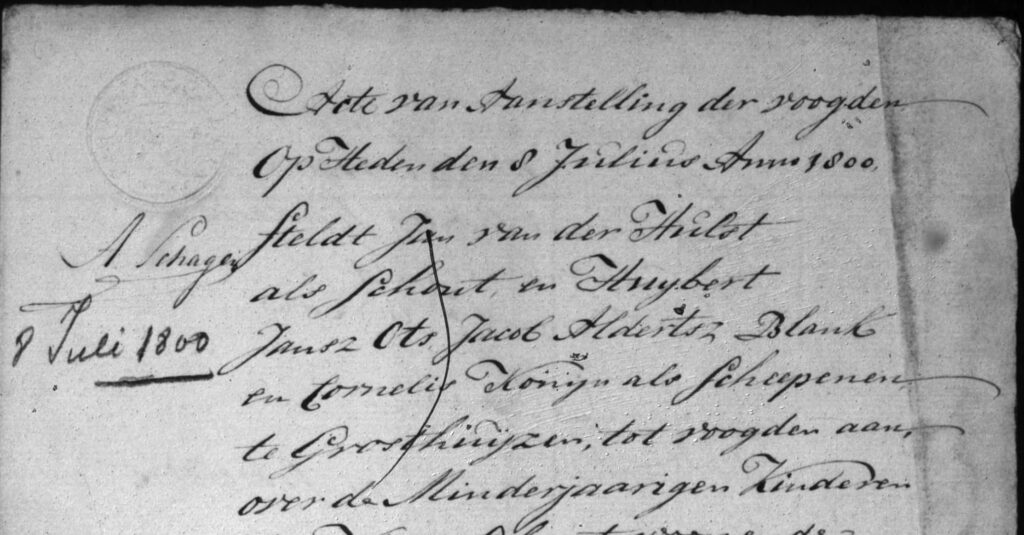 Acte van Aanstelling der voogden
Op Heden den 8 Julius Anno 1800.
A Schagen
8 Juli 1800
steldt Jan van der Hulst
als Schout, en Huybert
Jansz Ots, Jacob Aldertsz Blank
en Cornelis Konijn als Scheepenen
te Grosthuijzen, tot voogden aan,
over de Minderjaarigen Kinderen